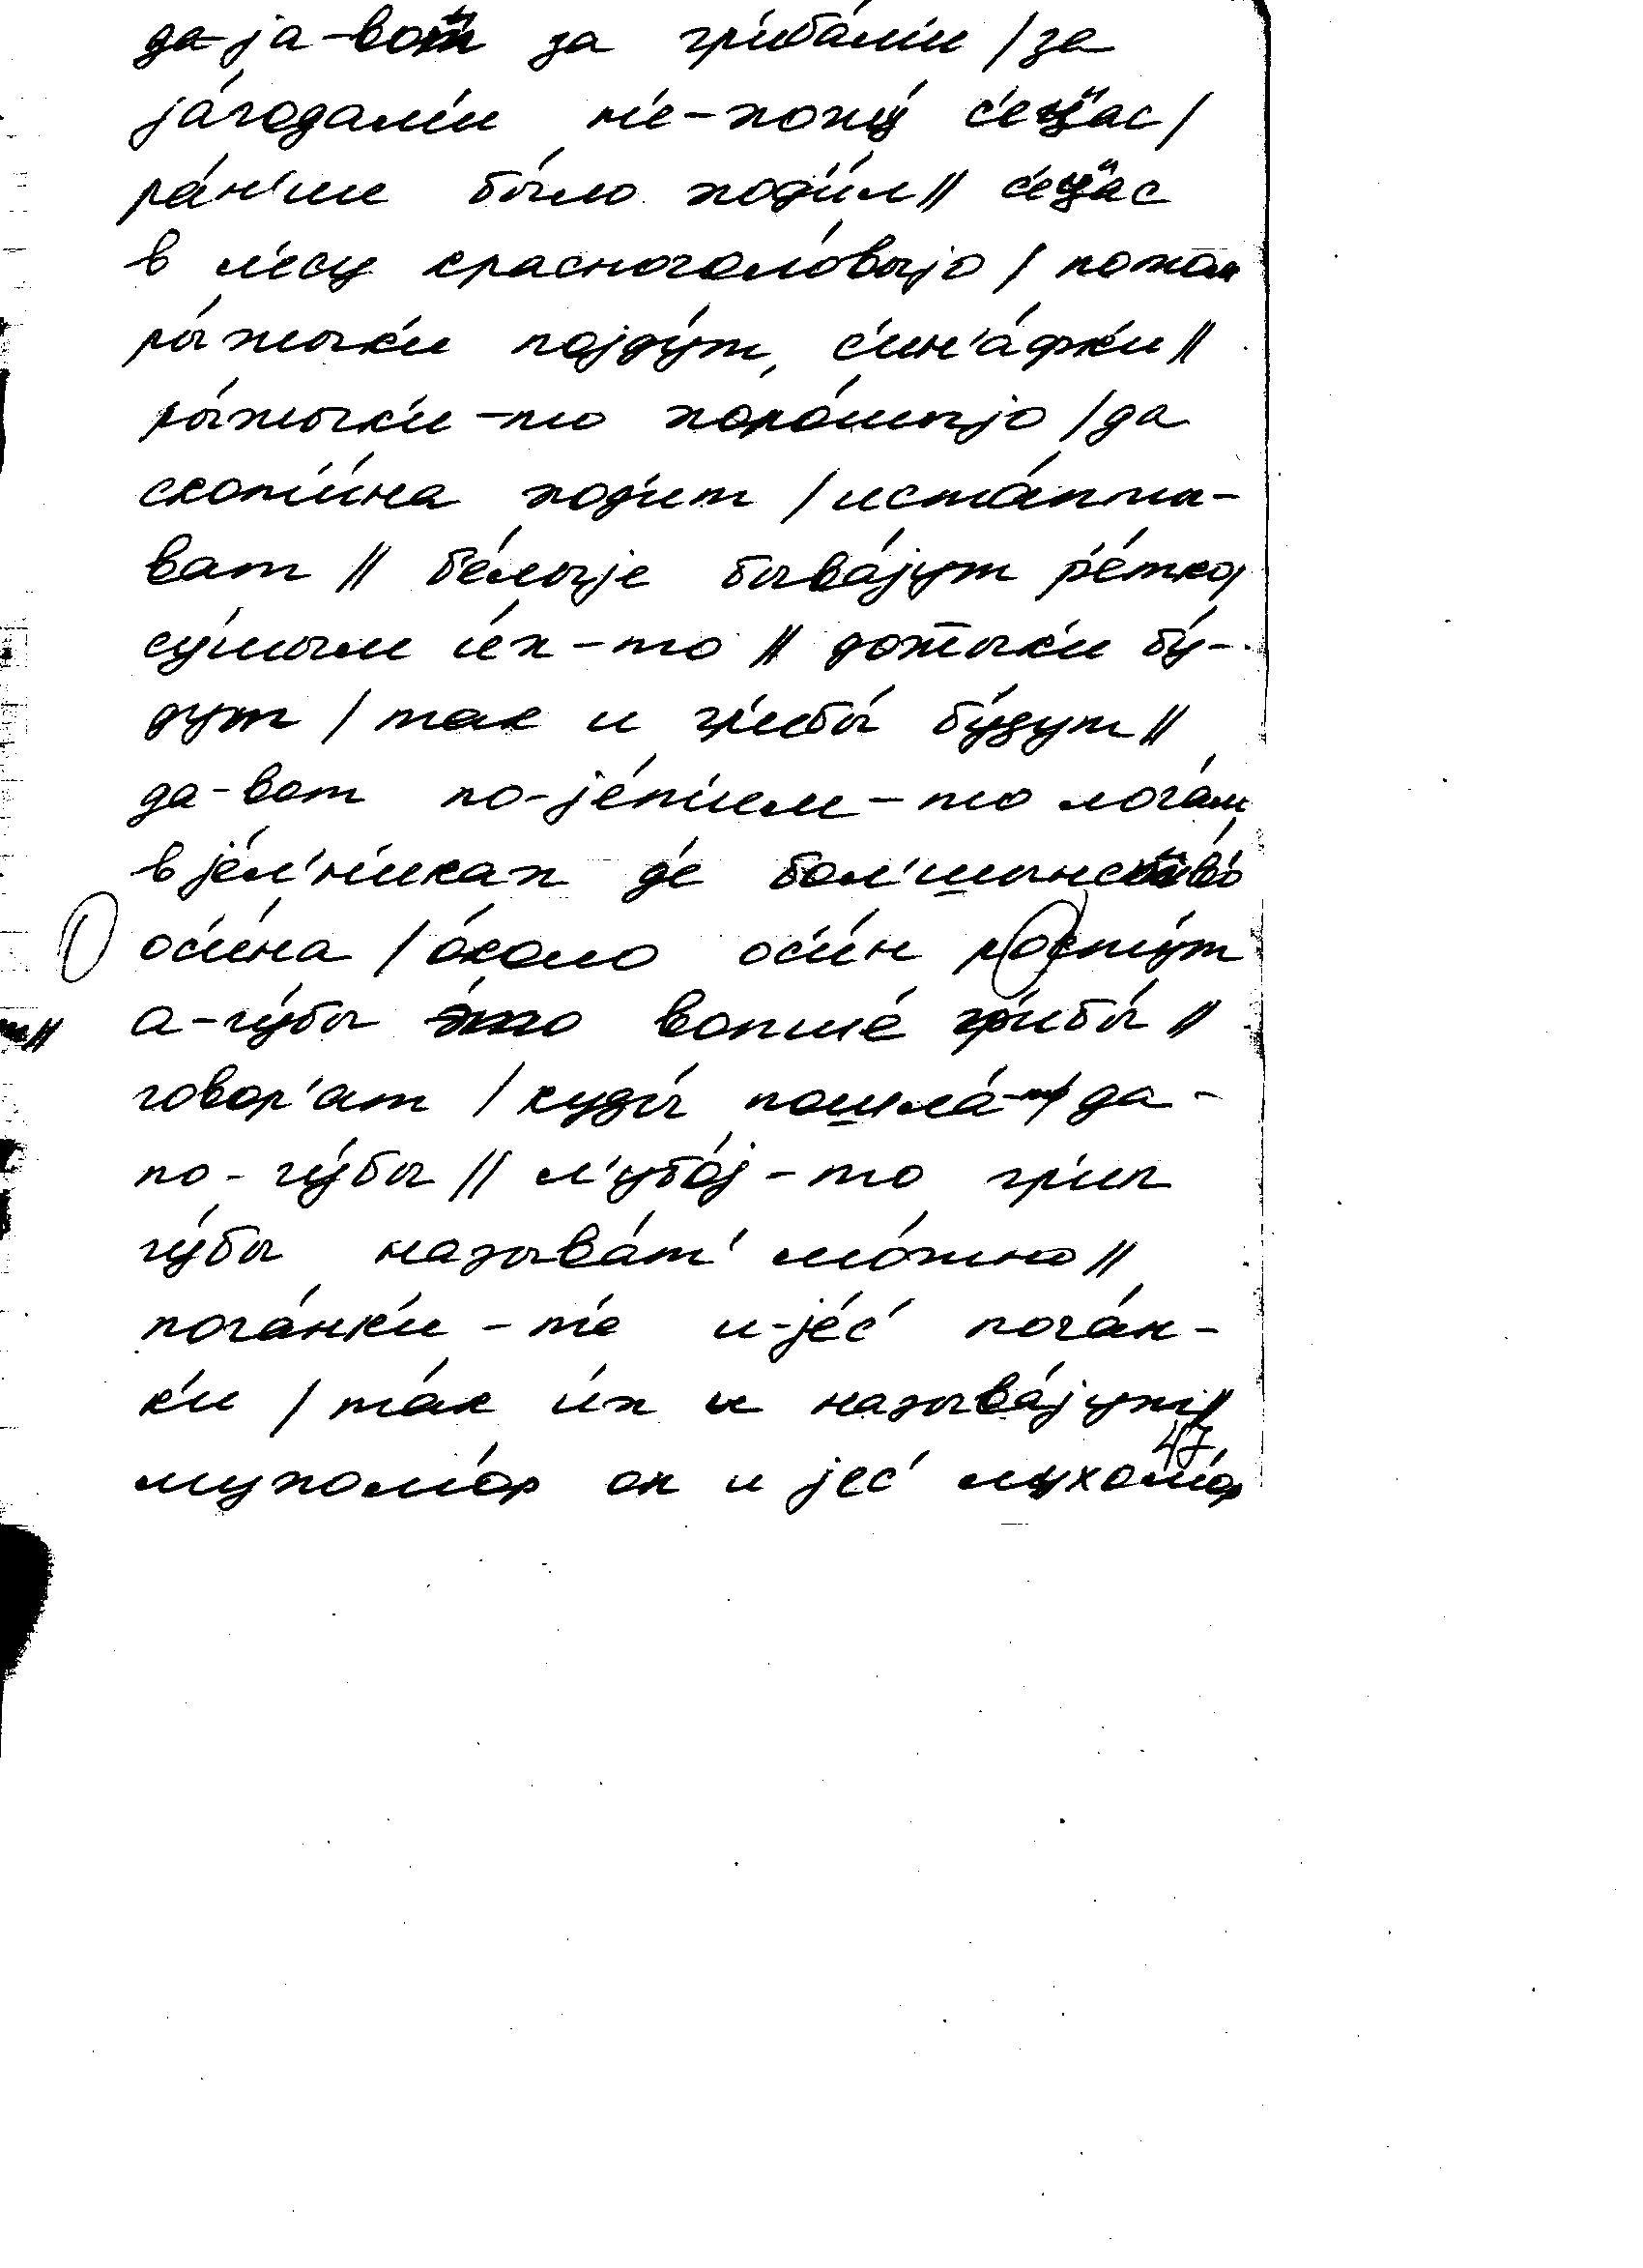 да-ја-вот за гр'иба́м'и / за
ја́годам'и н'е-хожу́ с'ец̌а́с /
ра́н'ше было ход'и́л // с'ец̌а́с
в л'есу красноголо́выјо / потом
ры́жык'и пoјду́т, с'ин'а́фк'и //
ры́жык'и-то хоро́шыјо / да
скот'и́на ход'ит / иста́пты-
ват // б'е́лыје быва́јут р'е́тко /
су́шым и́х-то // дожык'и бу́-
дут / так и гр'ибы́ бу́дут //
да-вот по-је́т'им-то лога́м
в је́л'н'иках д'е бол'шынство́
ос'и́на / о́коло ос'и́н росту́т
а-гу́бы э́то вопше́ гр'ибы́ //
говор'ат / куды́ пошла́-то / да-
по-гу́бы // л'убо́ј-то гр'ип
гу́бы называ́т' мо́жно //
пога́нк'и-т'е и-је́с' пога́н-
к'и / та́к и́х и называ́јут //
47
мухомо́р он и јес' мухомо́р